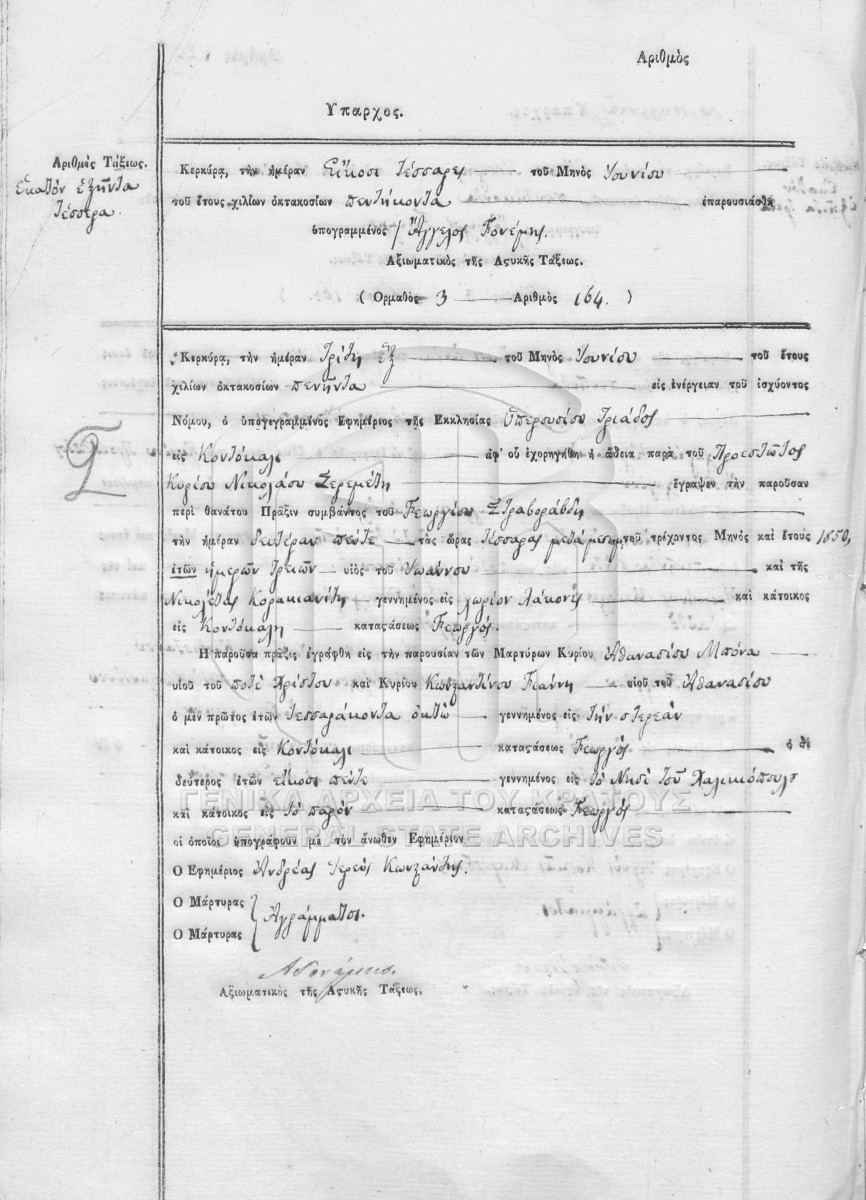 Αριθμὸς
Υπαρχος.
Αριθμὸς Τάξεως.
Ἑκατὸν ἑξῆντα
τέσσερα.
Κερκύρα, τὴν ἡμέραν Εἴκοσι τέσσαρες τοῦ Μηνὸς Ἰουνίου
τοῦ ἔτους χιλίων ὀκτακοσίων πεντήκοντα ἐπαρουσιάσθη
ὑπογραμμένος Ἄγγελος
Αξιωματικὸς τῆς Αςυκῆς Τάξεως.
( Ορμαθὸς 3 Αριθμὸς 164. )
Κερκύρα, τὴν ἡμέραν Τρίτη ἓξ τοῦ Μηνὸς Ἰουνίου τοῦ ἔτους
χιλίων ὀκτακοσίων πενῆντα εἰς ἐνέργειαν τοῦ ἰσχύοντος
Νόμου, ὁ ὑπογεγραμμένος Εφημέριος τῆς Εκκλησίας Ὑπερουσίου Τριάδος
εἰς Κοντόκαλι ἀφ' οὗ ἐχορηγήθη ἡ ἄδεια παρὰ τοῦ Προεστῶτος
Κυρίου Νικολάου Σερεμέτη ἔγραψεν τὴν παροῦσαν
περὶ θανάτου Πρᾶξιν συμβάντος τοῦ Γεωργίου Στραβοράβδη
τὴν ἡμέραν δευτέραν πέντε τὰς ὥρας τέσσαρας μετὰ μεσημ. τοῦ τρέχοντος Μηνὸς καὶ ἔτους 1850,
ἐτῶν ἡμερῶν τριῶν υἱὸς τοῦ Ἰωάννου καὶ τῆς
Νικολέτας Κορακιανίτη γεννημένος εἰς χωρίον Λάκονες καὶ κάτοικος
εἰς Κοντόκαλη καταςάσεως Γεωργός.
Η πάροῦσα πρᾶξις ἐγράφθη εἰς τὴν παρουσίαν τῶν Μαρτύρων Κυρίου Ἀθανασίου Μπόνα
υἱοῦ τοῦ ποτὲ Χρίστου καὶ Κυρίου Κωνσταντίνου Γιάννη υἱοῦ τοῦ Ἀθανασίου
ὁ μὲν πρῶτος ἐτῶν τεσσαράκοντα ὀκτὼ γεννημένος εἰς τὴν στερεὰν
καὶ κάτοικος εἰς Κοντόκαλι καταςάσεως Γεωργὸς ὁ δὲ
δεύτερος ἐτῶν εἴκοσι πέντε γεννημένος εἰς τὸ Νησὶ τοῦ Χαλικιόπουλου
καὶ κάτοικος εἰς τὸ παρὸν καταςάσεως Γεωργὸς
οἱ ὁποῖοι ὑπογράφουν μὲ τὸν ἄνωθεν Εφημέριον.
Ο Εφημέριος Ἀνδρέας Ἱερεὺς
Ο Μάρτυρας
Ἀγράμματοι.
Ο Μάρτυρας
Αξιωματικὸς τῆς Αςυκῆς Τάξεως,
ΓΕΝΙΚΑ ΑΡΧΕΙΑ ΤΟΥ ΚΡΑΤΟΥΣ
GENERAL STATE ARCHIVES